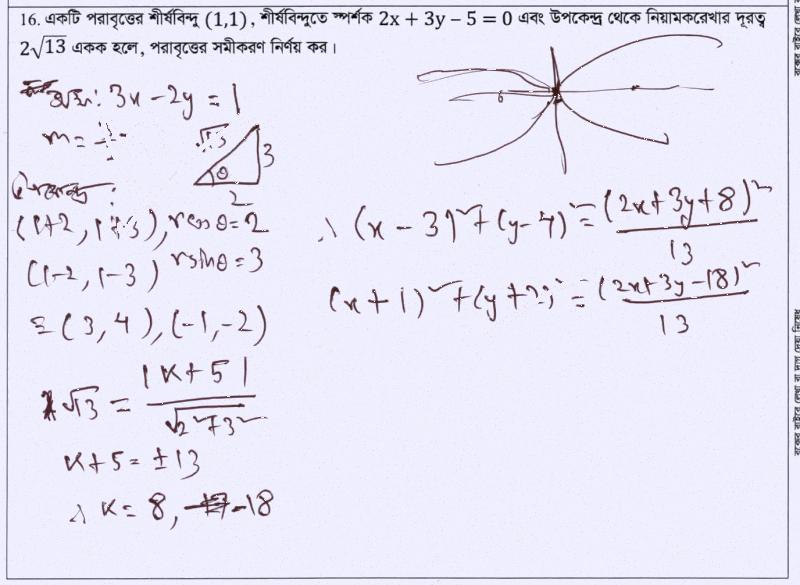 16. একটি পরাবৃত্তের শীর্ষবিন্দু (1,1), শীর্ষবিন্দুতে স্পর্শক 2x + 3y – 5 = 0 এবং উপকেন্দ্র থেকে নিয়ামকরেখার দূরত্ব
2√13 একক হলে, পরাবৃত্তের সমীকরণ নির্ণয় কর।
অক্ষ: 3x – 2y = 1
m =
√13 3
θ
2
উপকেন্দ্র :
(1+2, 1+3), r cos θ = 2
(1-2, 1-3) r sin θ = 3
≡ (3, 4), (-1, -2)
√13 = |K+5| / √2²+3²
K+5 = ±13
∴ K = 8, -18
∴ (x – 3)² + (y – 4)² = (2x+3y+8)² / 13
(x+1)² + (y+2)² = (2x+3y-18)² / 13